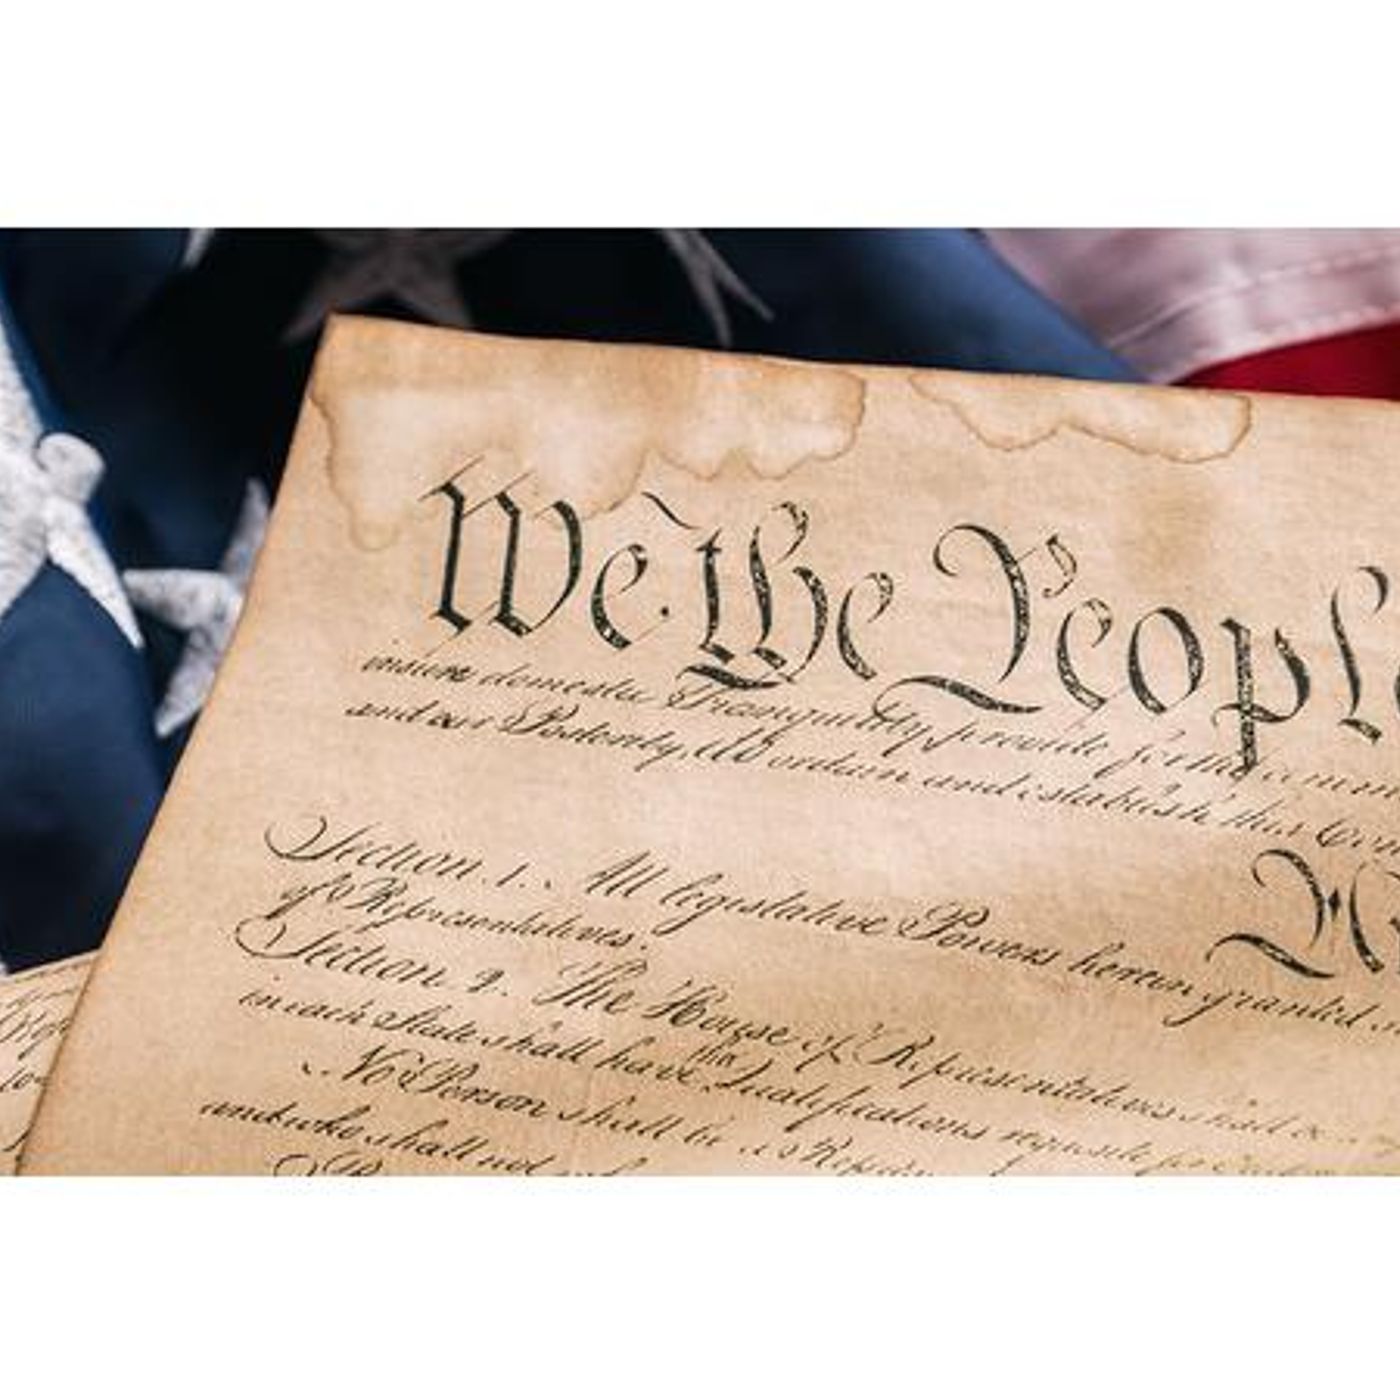 We the People
insure domestic Tranquility, provide for the common
and our Posterity, do ordain and establish this
Section. 1. All legislative Powers herein granted
of Representatives.
Section. 2. The House of Representatives shall be
in each State shall have the Qualifications requisite for
No Person shall be a
and who shall not